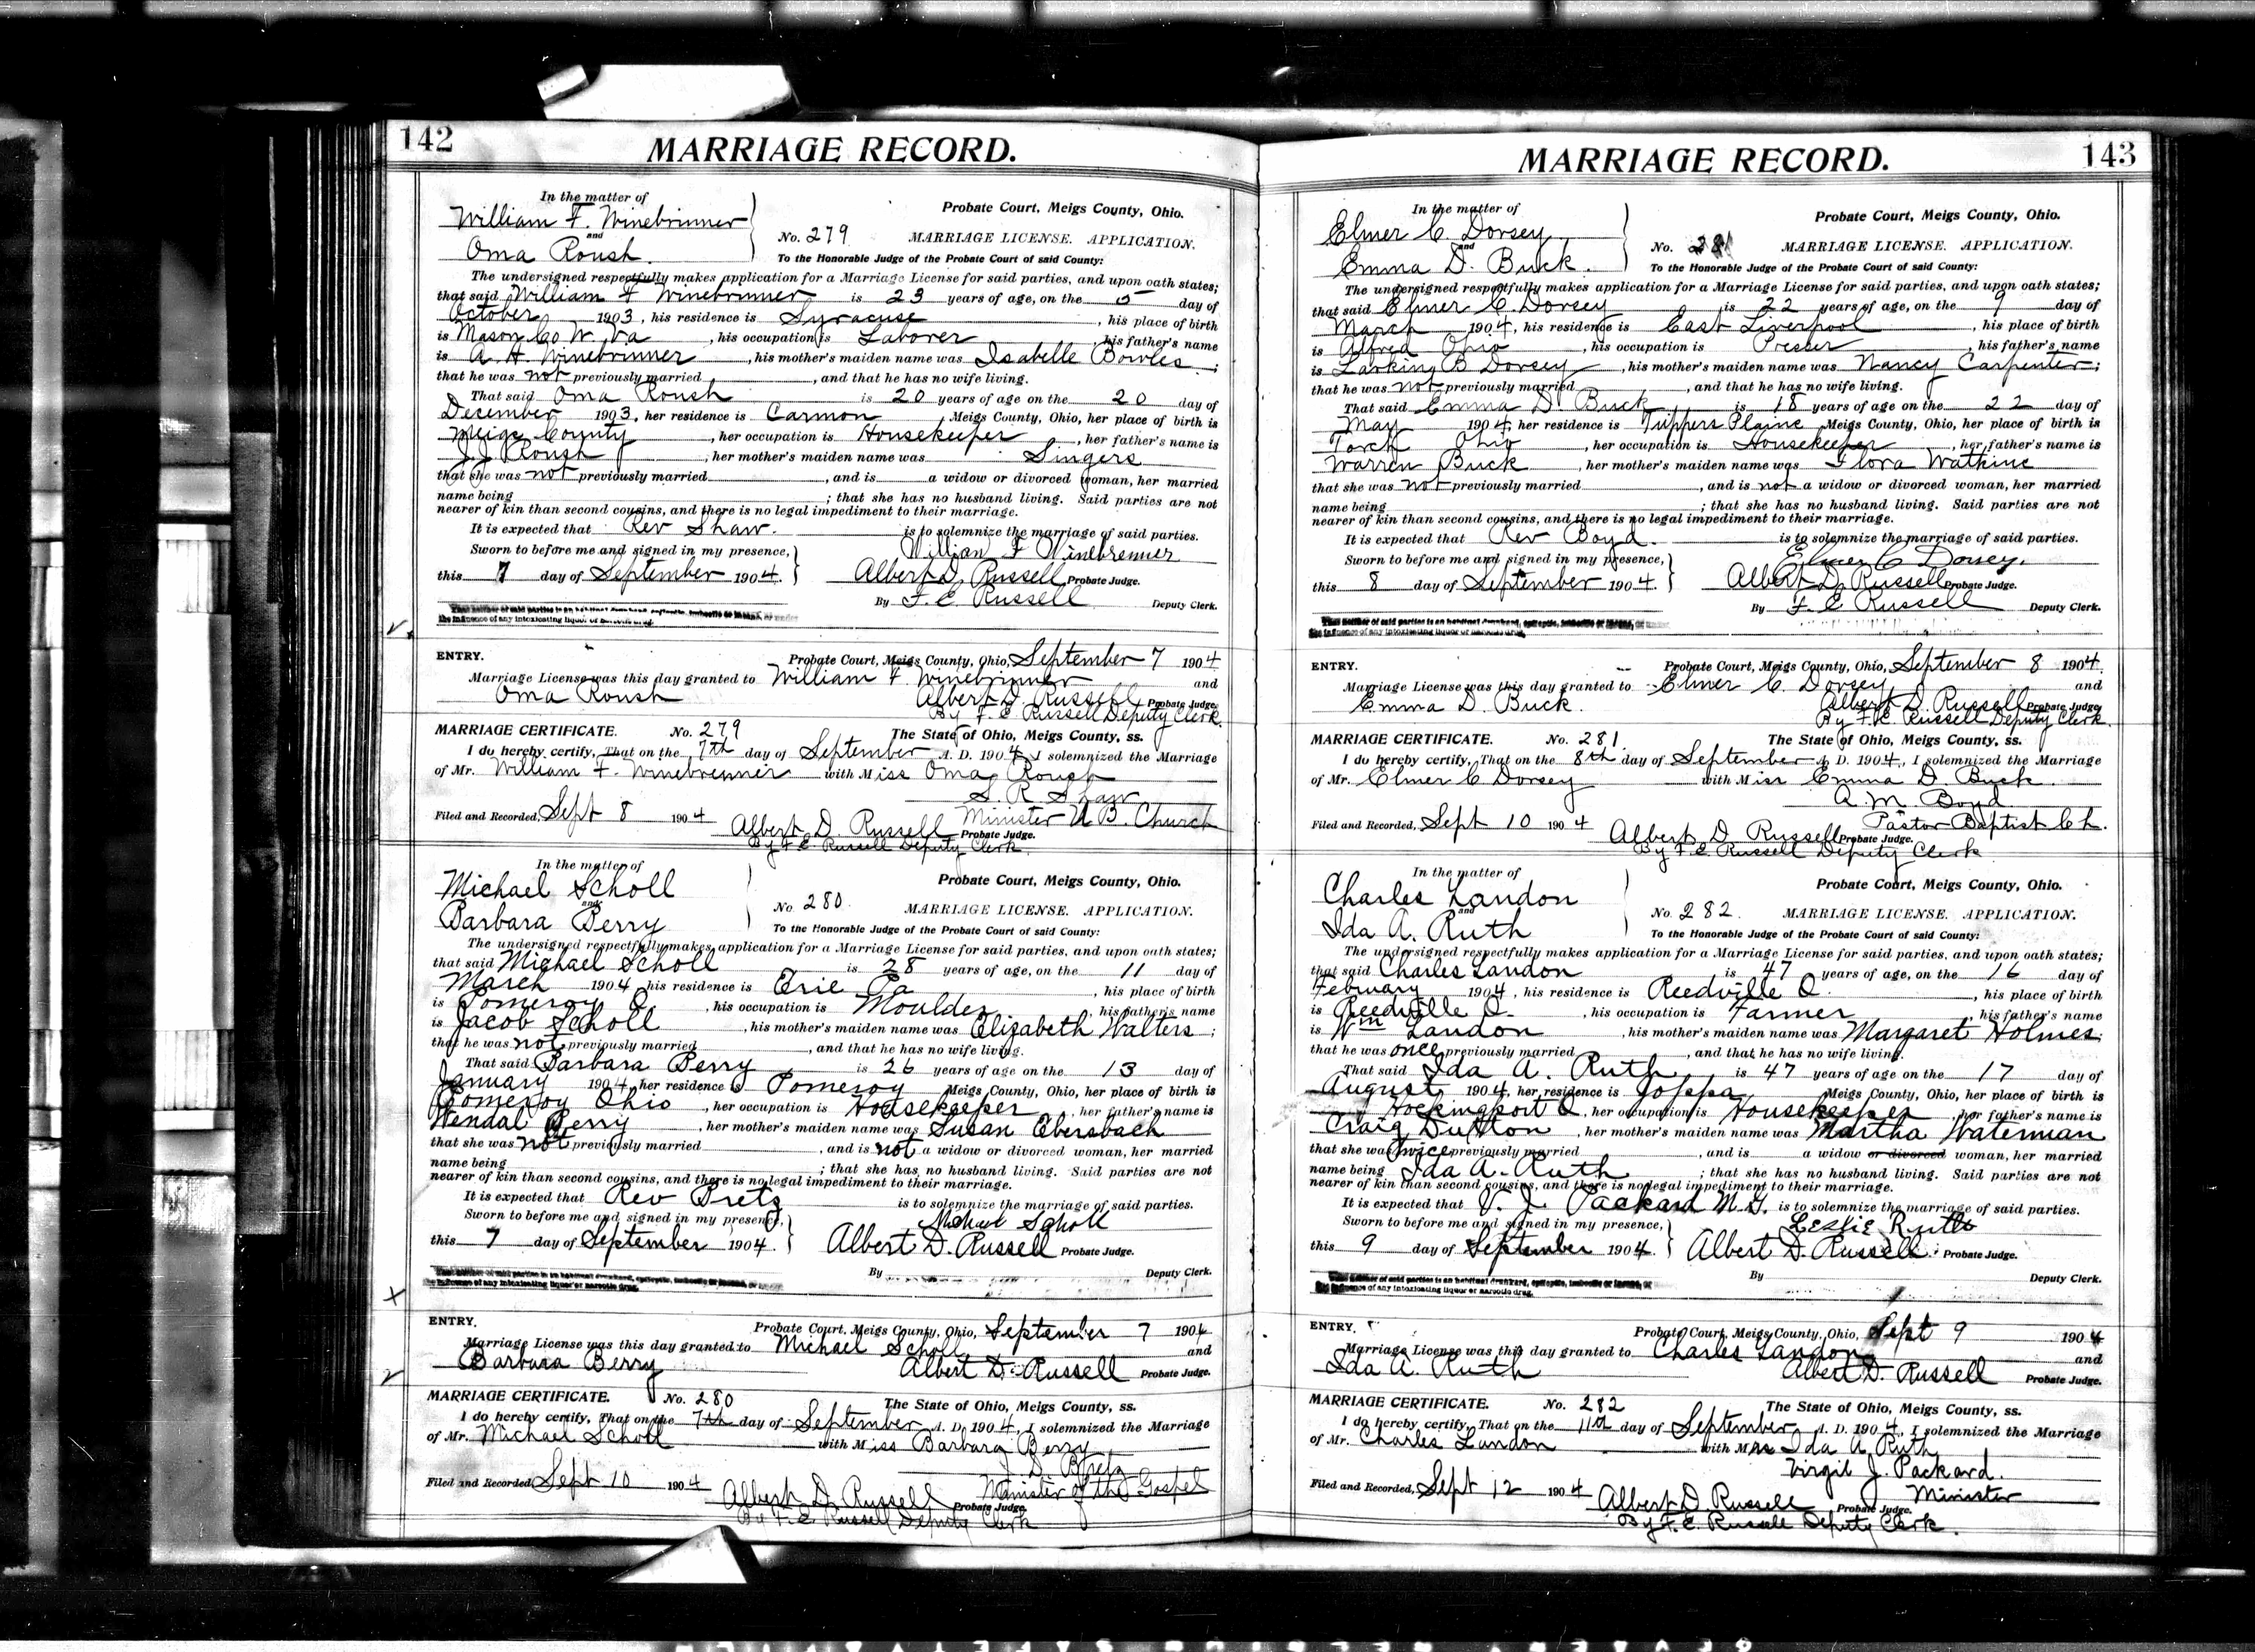 142
MARRIAGE RECORD.
In the matter of
William F. Winebrinner
and
Oma Roush.
Probate Court, Meigs County, Ohio.
No. 279 MARRIAGE LICENSE. APPLICATION.
To the Honorable Judge of the Probate Court of said County:
The undersigned respectfully makes application for a Marriage License for said parties, and upon oath states;
that said William F Winebrinner is 23 years of age, on the 5 day of
October 1903, his residence is Syracuse, his place of birth
is Mason Co W. Va, his occupation is Laborer, his father's name
is A. H. Winebrinner, his mother's maiden name was Isabelle Bowles;
that he was not previously married, and that he has no wife living.
That said Oma Roush is 20 years of age on the 20 day of
December 1903, her residence is Carmon, Meigs County, Ohio, her place of birth is
Meigs County, her occupation is Housekeeper, her father's name is
J. J. Roush, her mother's maiden name was Singers
that she was not previously married, and is a widow or divorced woman, her married
name being ; that she has no husband living. Said parties are not
nearer of kin than second cousins, and there is no legal impediment to their marriage.
It is expected that Rev Shaw. is to solemnize the marriage of said parties.
Sworn to before me and signed in my presence, William F Winebrenner
this 7 day of September 1904. Albert D. Russell Probate Judge.
By F. E. Russell Deputy Clerk.
That neither of said parties is an habitual drunkard, epileptic, imbecile or insane, or under
the influence of any intoxicating liquor or narcotic drug.
ENTRY. Probate Court, Meigs County, Ohio, September 7 1904
Marriage License was this day granted to William F. Winebrinner and
Oma Roush Albert D. Russell Probate Judge.
By F. E Russell Deputy Clerk.
MARRIAGE CERTIFICATE. No. 279 The State of Ohio, Meigs County, ss.
I do hereby certify, That on the 7th day of September A. D. 1904, I solemnized the Marriage
of Mr. William F. Winebrenner with Miss Oma Roush
S. R Shaw
Minister U. B. Church
Filed and Recorded, Sept 8 1904 Albert D. Russell Probate Judge.
By F. E. Russell Deputy Clerk.
In the matter of
Michael Scholl
and
Barbara Berry
Probate Court, Meigs County, Ohio.
No. 280. MARRIAGE LICENSE. APPLICATION.
To the Honorable Judge of the Probate Court of said County:
The undersigned respectfully makes application for a Marriage License for said parties, and upon oath states;
that said Michael Scholl is 28 years of age, on the 11 day of
March 1904 his residence is Erie Pa, his place of birth
is Pomeroy O, his occupation is Moulder, his father's name
is Jacob Scholl, his mother's maiden name was Elizabeth Walters;
that he was not previously married, and that he has no wife living.
That said Barbara Berry is 26 years of age on the 13 day of
January 1904, her residence is Pomeroy Meigs County, Ohio, her place of birth is
Pomeroy Ohio, her occupation is Housekeeper, her father's name is
Wendal Berry, her mother's maiden name was Susan Ebersbach
that she was not previously married, and is not a widow or divorced woman, her married
name being ; that she has no husband living. Said parties are not
nearer of kin than second cousins, and there is no legal impediment to their marriage.
It is expected that Rev Bretz is to solemnize the marriage of said parties.
Sworn to before me and signed in my presence, Michael Scholl
this 7 day of September 1904. Albert D. Russell Probate Judge.
By Deputy Clerk.
That neither of said parties is an habitual drunkard, epileptic, imbecile or insane, or under
the influence of any intoxicating liquor or narcotic drug.
ENTRY. Probate Court, Meigs County, Ohio, September 7 1904
Marriage License was this day granted to Michael Scholl and
Barbara Berry Albert D. Russell Probate Judge.
MARRIAGE CERTIFICATE. No. 280 The State of Ohio, Meigs County, ss.
I do hereby certify, That on the 7th day of September A. D. 1904, I solemnized the Marriage
of Mr. Michael Scholl with Miss Barbara Berry
J. D. Bretz
Minister of the Gospel
Filed and Recorded Sept 10 1904 Albert D. Russell Probate Judge.
By F. E. Russell Deputy Clerk
143
MARRIAGE RECORD.
In the matter of
Elmer C Dorsey
and
Emma D. Buck.
Probate Court, Meigs County, Ohio.
No. 281 MARRIAGE LICENSE. APPLICATION.
To the Honorable Judge of the Probate Court of said County:
The undersigned respectfully makes application for a Marriage License for said parties, and upon oath states;
that said Elmer C. Dorsey is 22 years of age, on the 9 day of
March 1904, his residence is East Liverpool, his place of birth
is Alfred Ohio, his occupation is Presser, his father's name
is Larking B Dorsey, his mother's maiden name was Nancy Carpenter;
that he was not previously married, and that he has no wife living.
That said Emma D. Buck is 18 years of age on the 22 day of
May 1904, her residence is Tuppers Plains Meigs County, Ohio, her place of birth is
Torch Ohio, her occupation is Housekeeper, her father's name is
Warren Buck, her mother's maiden name was Flora Watkins
that she was not previously married, and is not a widow or divorced woman, her married
name being ; that she has no husband living. Said parties are not
nearer of kin than second cousins, and there is no legal impediment to their marriage.
It is expected that Rev Boyd. is to solemnize the marriage of said parties.
Sworn to before me and signed in my presence, Elmer C Dorsey.
this 8 day of September 1904. Albert D. Russell Probate Judge.
By F. E Russell Deputy Clerk.
That neither of said parties is an habitual drunkard, epileptic, imbecile or insane, or under
the influence of any intoxicating liquor or narcotic drug.
ENTRY. Probate Court, Meigs County, Ohio, September 8 1904.
Marriage License was this day granted to Elmer C. Dorsey and
Emma D. Buck. Albert D. Russell Probate Judge
By F. E. Russell Deputy Clerk.
MARRIAGE CERTIFICATE. No. 281. The State of Ohio, Meigs County, ss.
I do hereby certify, That on the 8th day of September A. D. 1904, I solemnized the Marriage
of Mr. Elmer C Dorsey with Miss Emma D. Buck.
A. M. Boyd
Pastor Baptist Ch.
Filed and Recorded, Sept 10 1904 Albert D. Russell Probate Judge.
By F. E. Russell Deputy Clerk
In the matter of
Charles Landon
and
Ida A. Ruth
Probate Court, Meigs County, Ohio.
No. 282. MARRIAGE LICENSE. APPLICATION.
To the Honorable Judge of the Probate Court of said County:
The undersigned respectfully makes application for a Marriage License for said parties, and upon oath states;
that said Charles Landon is 47 years of age, on the 16 day of
February 1904, his residence is Reedville O., his place of birth
is Reedville O., his occupation is Farmer, his father's name
is Wm Landon, his mother's maiden name was Margaret Holmes;
that he was once previously married, and that he has no wife living.
That said Ida A. Ruth is 47 years of age on the 17 day of
August 1904, her residence is Joppa, Meigs County, Ohio, her place of birth is
Hockingport O, her occupation is Housekeeper, her father's name is
Craig Dutton, her mother's maiden name was Martha Waterman
that she was twice previously married, and is a widow or divorced woman, her married
name being Ida A. Ruth ; that she has no husband living. Said parties are not
nearer of kin than second cousins, and there is no legal impediment to their marriage.
It is expected that V. J. Packard M. G. is to solemnize the marriage of said parties.
Sworn to before me and signed in my presence, Leslie Ruth
this 9 day of September 1904. Albert D. Russell. Probate Judge.
By Deputy Clerk.
That neither of said parties is an habitual drunkard, epileptic, imbecile or insane, or
the influence of any intoxicating liquor or narcotic drug.
ENTRY. Probate Court, Meigs County, Ohio, Sept 9 1904
Marriage License was this day granted to Charles Landon and
Ida A. Ruth Albert D. Russell Probate Judge.
MARRIAGE CERTIFICATE. No. 282 The State of Ohio, Meigs County, ss.
I do hereby certify, That on the 11th day of September A. D. 1904, I solemnized the Marriage
of Mr. Charles Landon with Mrs Ida A. Ruth
Virgil J. Packard.
Minister
Filed and Recorded, Sept 12 1904 Albert D. Russell Probate Judge.
By F. E. Russell Deputy Clerk.